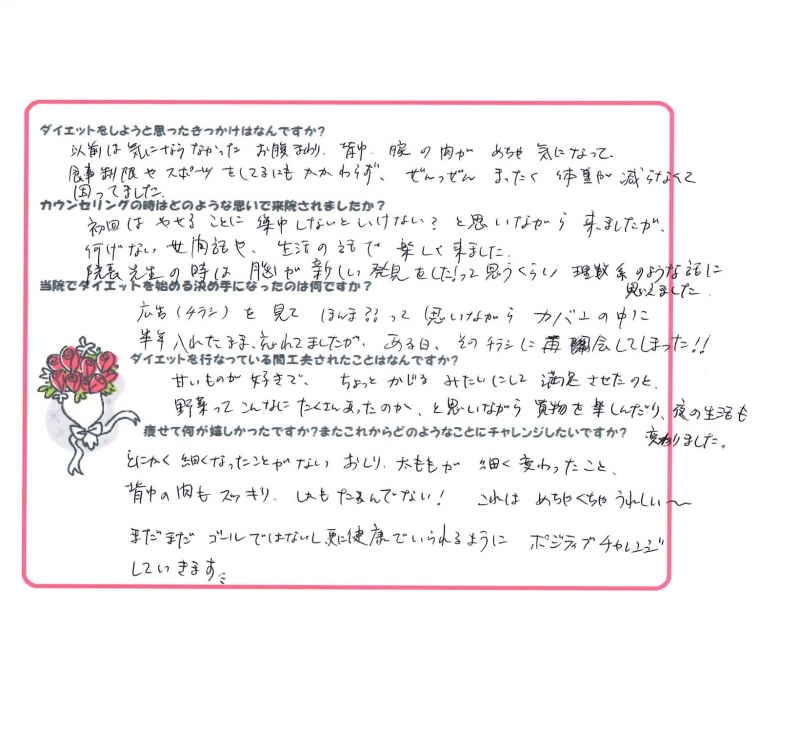 ダイエットをしようと思ったきっかけはなんですか?
以前は気にならなかった お腹まわり、背中、腕の肉が めちゃ 気になって、
食事制限やスポーツをしてるにもかかわらず、ぜんっぜん まったく 体重が 減らなくて
困ってました。
カウンセリングの時はどのような思いで来院されましたか?
初回は やせる ことに 集中しないといけない？と思いながら 来ましたが、
何げない 世間話や、生活の話で 楽しく来ました。
院長先生の時は 脳が新しい発見をした!って思うくらい 理数系のような話に
思えました。
当院でダイエットを始める決め手になったのは何ですか?
広告(チラシ)を見て ほんまぁ?って 思いながら カバンの中に
半年 入れたまま、忘れてましたが、ある日、そのチラシに再開会してしまった!!
ダイエットを行なっている間工夫されたことはなんですか?
甘いものが好きで、ちょっと かじる みたいにして 満足させたのと、
野菜ってこんなにたくさんあったのか、と思いながら 買物を楽しんだり、夜の生活も
変わりました。
痩せて何が嬉しかったですか?またこれからどのようなことにチャレンジしたいですか?
とにかく 細くなったことがない おしり、太ももが 細く変わったこと、
背中の肉も スッキリ、しかもたるんでない! これは めちゃくちゃ うれしい〜
まだまだ ゴールではないし更に健康でいられるように ポジティブチャレンジ
していきます。